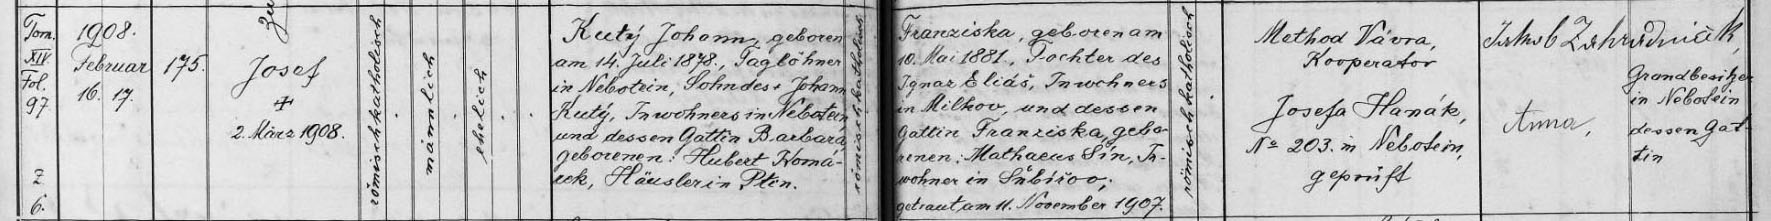 Tom.
XIV.
Fol.
97.
2
6.
1908.
Februar
16. 17.
175.
Josef
+
2. März 1908.
römischkatholisch
männlich
ehelich
Kutý Johann, geboren
am 14. Juli 1878., Taglöhner
in Nebotein, Sohn des + Johann
Kutý, Inwohners in Nebotein
und dessen Gattin Barbara,
geborenen: Hubert Komá-
rek, Häusler in Ptin.
römischkatholisch
Franziska, geboren am
10. Mai 1881., Tochter des
Ignaz Eliáš, Inwohners
in Milkov, und dessen
Gattin Franziska, gebo-
renen: Mathaeus Šín, In-
wohner in Šubířov;
getraut am 11. November 1907.
römischkatholisch
Method Vávra,
Kooperator
Josefa Hanák,
No 203. in Nebotein,
geprüft
Jakob Zahradníček,
Grundbesitzer
in Nebotein
Anna,
dessen Gat-
tin